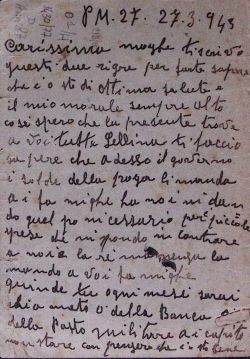 PM. 27. 27.3.943
Carissima moglie ti scrivo
questi due rigre per farte sapere
che io sto di ottima salute e
il mio morale sempre alto
cosi spero che la presente trova
a voi tutte Lellina ti faccio
sapere che adesso il governo
i solde della paga li manda
a i famighe ha noi ni dan
do quel po nicessario per piccole
spese
a noi e la
mando a voi famighe
quinde tu ogni mesi sarai
chiamata o della Banca o
della Posto militare ai capito
non stare con penzere che io sto bene